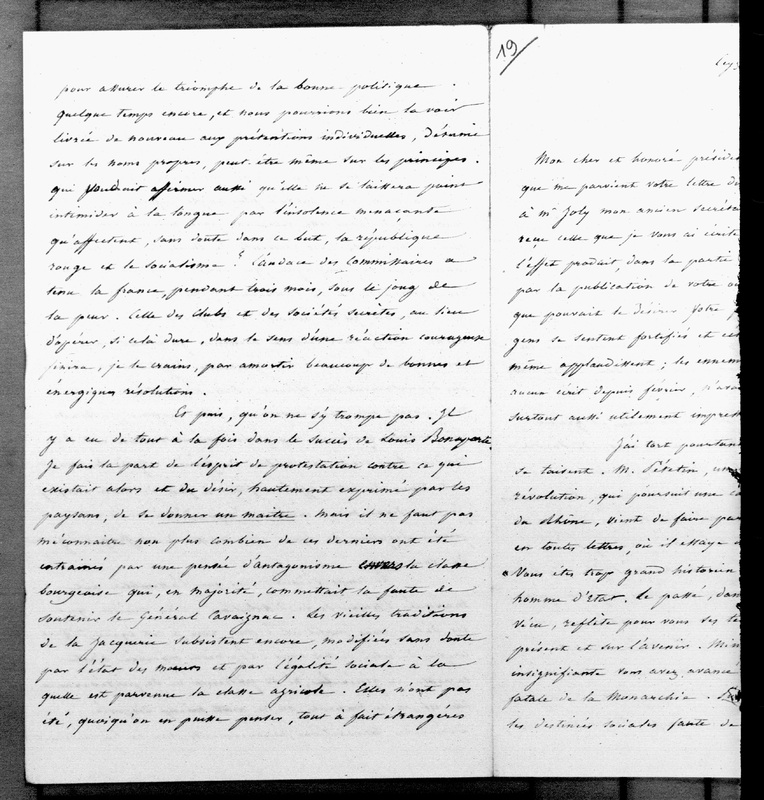 pour assurer le triomphe de la bonne politique.
Quelque temps encore, et nous pourrions bien la voir
livrée de nouveau aux prétentions individuelles, désunie
sur les noms propres, peut être même sur les principes.
qui voudrait affirmer aussi qu'elle ne se laissera point
intimider à la longue par l'insolence menaçante
qu'affectent, sans doute dans ce but, la république
rouge et le socialisme? L'audace des Commissaires a
tenu la france, pendant trois mois, sous le joug de
la peur. Celle des Clubs et des Sociétés secrètes, au lieu
d'opérer, si celà dure, dans le sens d'une réaction courageuse
finira, je le crains, par amortir beaucoup de bonnes et
énergiques résolutions.
Et puis, qu'on ne s'y trompe pas. Il
y a eu de tout à la fois dans le succès de Louis Bonaparte.
Je fais la part de l'esprit de protestation contre ce qui
existait alors et du désir, hautement exprimé par les
paysans, de se donner un maitre. Mais il ne faut pas
méconnaitre non plus combien de ces derniers ont été
entrainés par une pensée d'antagonisme envers la classe
bourgeoise qui, en majorité, commettait la faute de
soutenir le Général Cavaignac. Les vieilles traditions
de la Jacquerie subsistent encore, modifiées sans doute
par l'état des mœurs et par l'égalité sociale à la
quelle est parvenue la classe agricole. Elles n'ont pas
été, quoiqu'on en puisse penser, tout à fait étrangères
19
Mon cher et honoré présiden
que me parvient votre lettre du
à Mr Joly mon ancien secréta
reçu celle que je vous ai écrite
l'effet produit, dans la partie
par la publication de votre
que pouvait le désirer votre
gens se sentent fortifiés et
même applaudissent; les ennem
aucun écrit depuis février, n'avai
surtout aussi utilement impress
J'ai tort pourtant
se taisent. M. Pételin, un
révolution, qui poursuit une
du Rhône, vient de faire par
en toutes lettres, où il essaye
Vous êtes trop grand historien
homme d'Etat. Le passé, dan
vécu, reflète pour vous ses te
présent et sur l'avenir. Min
insignifiante vous avez avancé
fatale de la Monarchie.
les destinées sociales faute de